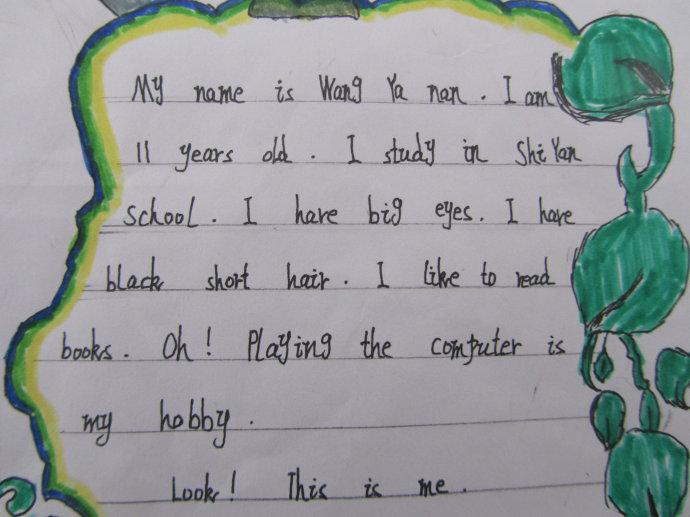 My name is Wang Ya nan. I am
11 years old. I study in Shi Yan
school. I have big eyes. I have
black short hair. I like to read
books. Oh! Playing the computer is
my hobby.
Look! This is me.